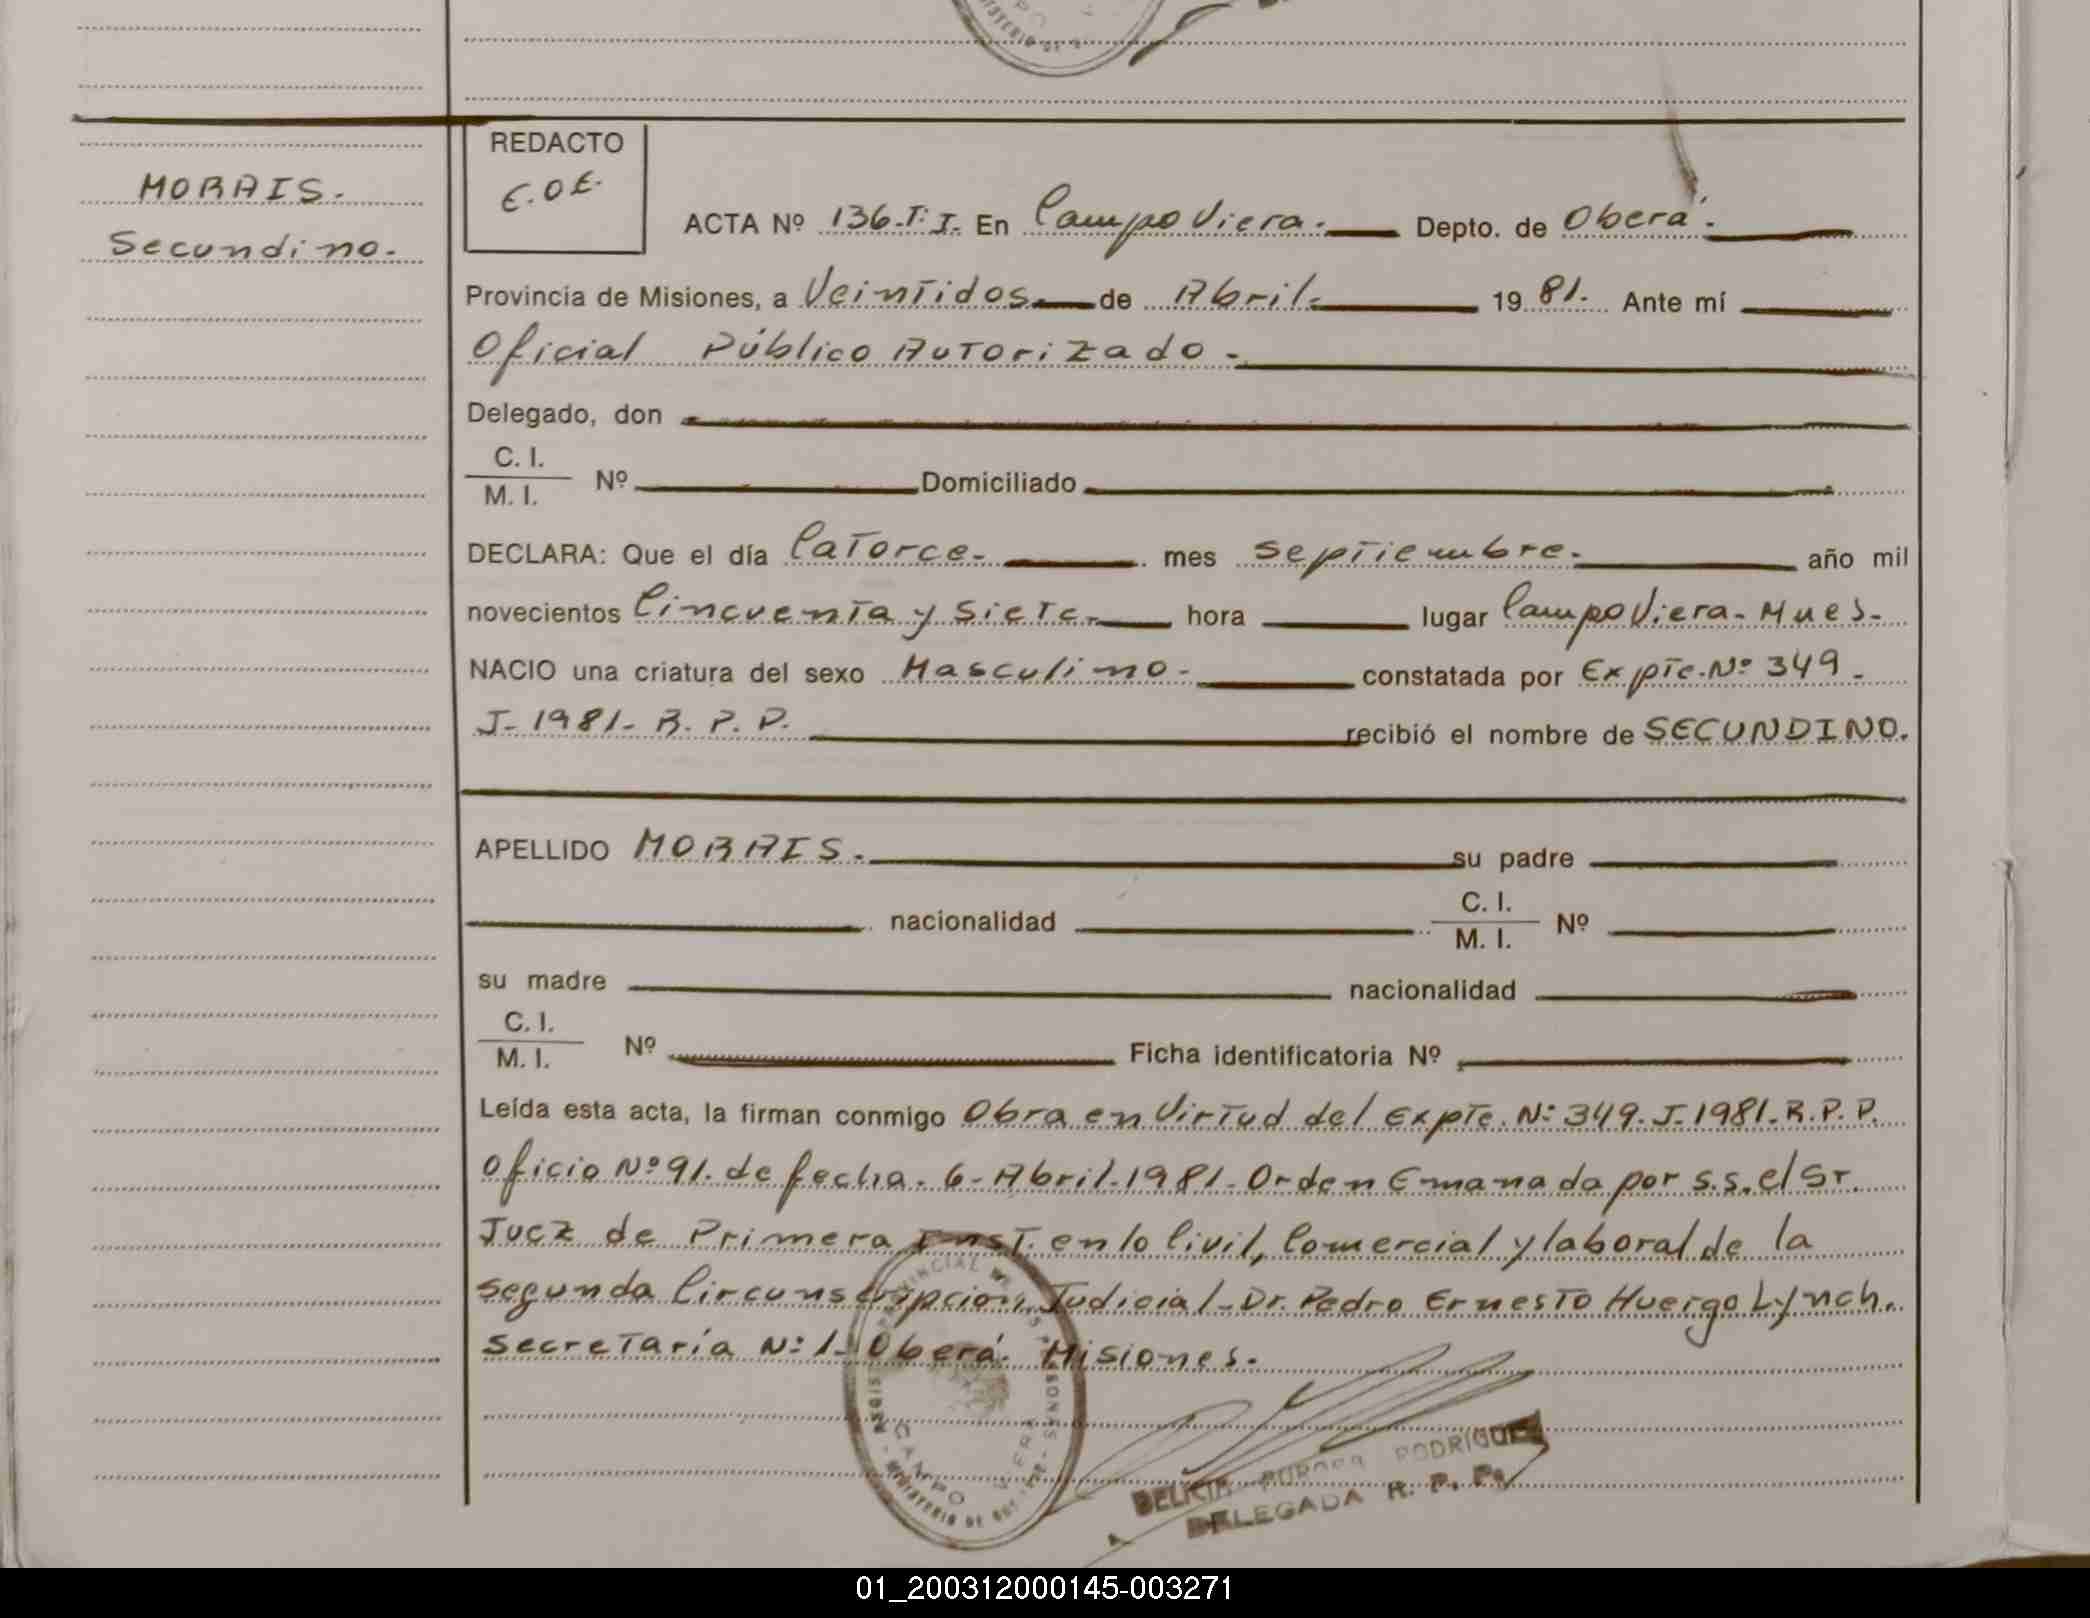 MORAIS.
Secundino.
REDACTO
E.O.E.
ACTA Nº 136.T: I. En Campo Viera. Depto. de Oberá.
Provincia de Misiones, a Veintidos de Abril. 19 81. Ante mí
Oficial Público Autorizado.
Delegado, don
C. I.
M. I. Nº Domiciliado
DECLARA: Que el día Catorce. mes Septiembre. año mil
novecientos Cincuenta y Siete. hora lugar Campo Viera. Mnes.
NACIO una criatura del sexo Masculino. constatada por Expte. Nº 349.
J-1981-R.P.P. recibió el nombre de SECUNDINO.
APELLIDO MORAIS. su padre
nacionalidad C. I.
M. I. Nº
su madre nacionalidad
C. I.
M. I. Nº Ficha identificatoria Nº
Leída esta acta, la firman conmigo Obra en Virtud del Expte. Nº: 349. J-1981-R.P.P.
Oficio Nº 91. de fecha. 6-Abril-1981. Orden Emanada por S.S. el Sr.
Juez de Primera Inst. en lo Civil, Comercial y Laboral de la
Segunda Circunscripcion Judicial-Dr. Pedro Ernesto Huergo Lynch.
Secretaría Nº: 1. Oberá. Misiones.
CAMPO VIERA
RODRIGUEZ
DELEGADA R. P. P.
01_200312000145-003271